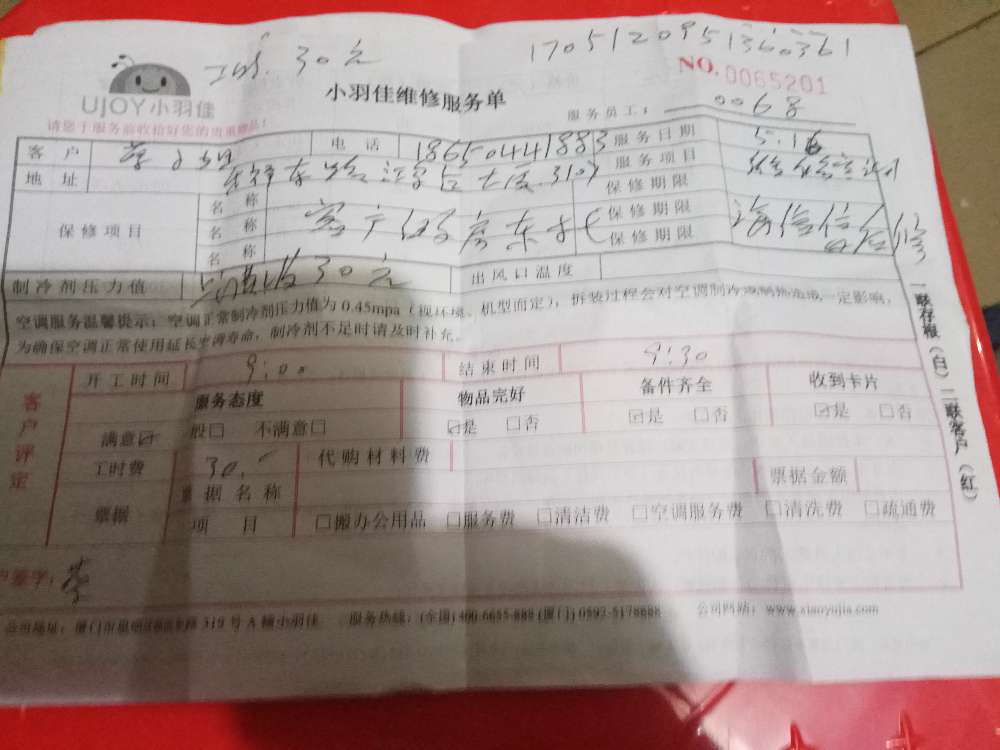 30元 1705120951360361
UJOY小羽佳
小羽佳维修服务单 NO.0065201
请您于服务前收拾好您的贵重物品！ 服务员工： 0068
客户 小姐 电话 18650441883 服务日期 5.16
地址 服务项目
保修项目 名称 保修期限
名称 保修期限
名称 保修期限
制冷剂压力值 30元 出风口温度
空调服务温馨提示：空调正常制冷剂压力值为0.45mpa（视环境、机型而定），拆装过程会对空调制冷剂 一定影响，
为确保空调正常使用延长空调寿命，制冷剂不足时请及时补充。
一联存根（白）二联客户（红）
客户评定
开工时间 9:00 结束时间 9:30
服务态度 物品完好 备件齐全 收到卡片
满意☑ 般□ 不满意□ ☑是 □否 ☑是 □否 ☑是 □否
工时费 30. 代购材料费
票据 票据名称 票据金额
项目 □搬办公用品 □服务费 □清洁费 □空调服务费 □清洗费 □疏通费
户签字：
公司地址：厦门市 319号A幢小羽佳 服务热线：(全国)400-6655-888 (厦门) 0592-5178888 公司网站：www.xiaoyujia.com